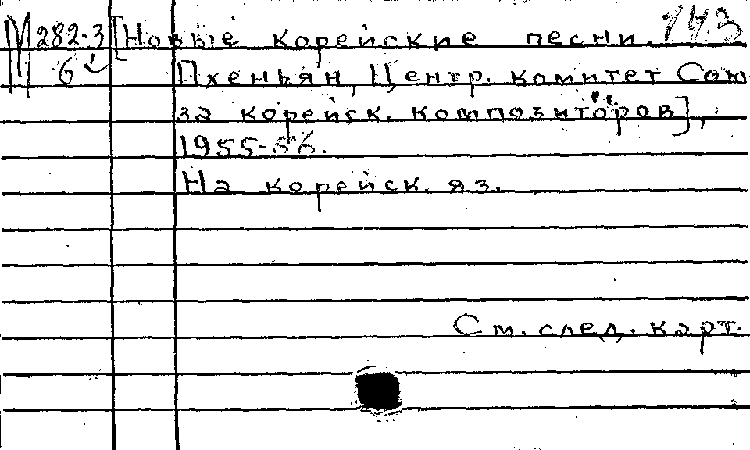 М282-3 [Новые корейские песни. 143
6 Пхеньян, Центр. комитет Сою
за корейск. композиторов],
1955-56.
На корейск. яз.
См. след. карт.